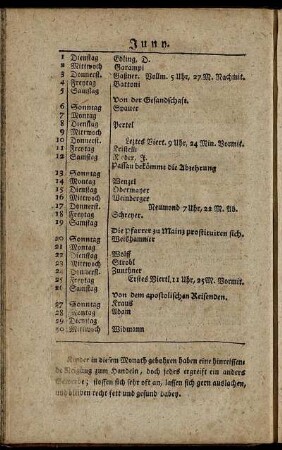 Juny.
1 Dienstag Ebling, D.
2 Mittwoch Garampi
3 Donnerst. Gaßner. Vollm. 5 Uhr, 27. M. Nachmit.
4 Freytag Battoni
5 Samstag
Von der Gesandschaft.
6 Sonntag Spauer
7 Montag
8 Dienstag Pertel
9 Mittwoch
10 Donnerst. Leztes Viert. 9 Uhr, 24 Min. Vormit.
11 Freytag
12 Samstag J.
Passau bekömmt die Abzehrung
13 Sonntag
14 Montag Wenzel
15 Dienstag Obermayer
16 Mittwoch Weinberger
17 Donnerst. Neumond 7 Uhr, 22 M. Ab.
18 Freytag Schreyer.
19 Samstag
Die Pfarrer zu Mainz prostituiren sich.
20 Sonntag Weißhammer
21 Montag
22 Dienstag Wolff
23 Mittwoch Strobl
24 Donnerst. Zunthner
25 Freytag Erstes Viertl, 11 Uhr, 25 M. Vormit.
26 Samstag
Von dem apostolischen Reisenden.
27 Sonntag Kraus
28 Montag Adam
29 Dienstag
30 Mittwoch Widmann
Kinder in diesem Monath gebohren haben eine hinreissen-
de Neigung zum Handeln, doch jedes ergreift ein anders
Gewerbe; stossen sich sehr oft an, lassen sich gern auslachen,
und bleiben recht fett und gesund dabey.